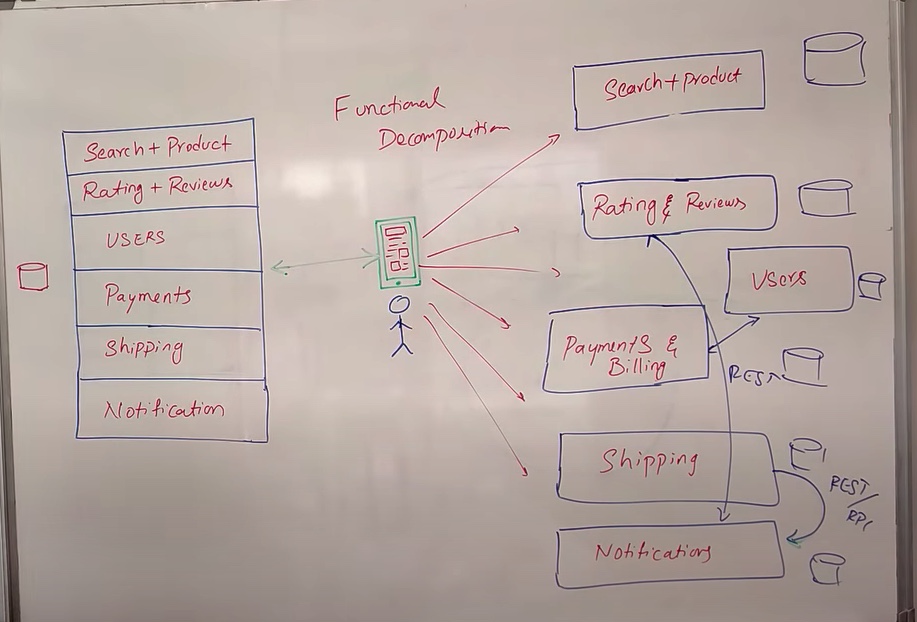 Functional
Decomposition
Search + Product
Rating + Reviews
USERS
Payments
Shipping
Notification
Search + Product
Rating & Reviews
Users
Payments &
Billing
REST
Shipping
REST/
RPC
Notifications